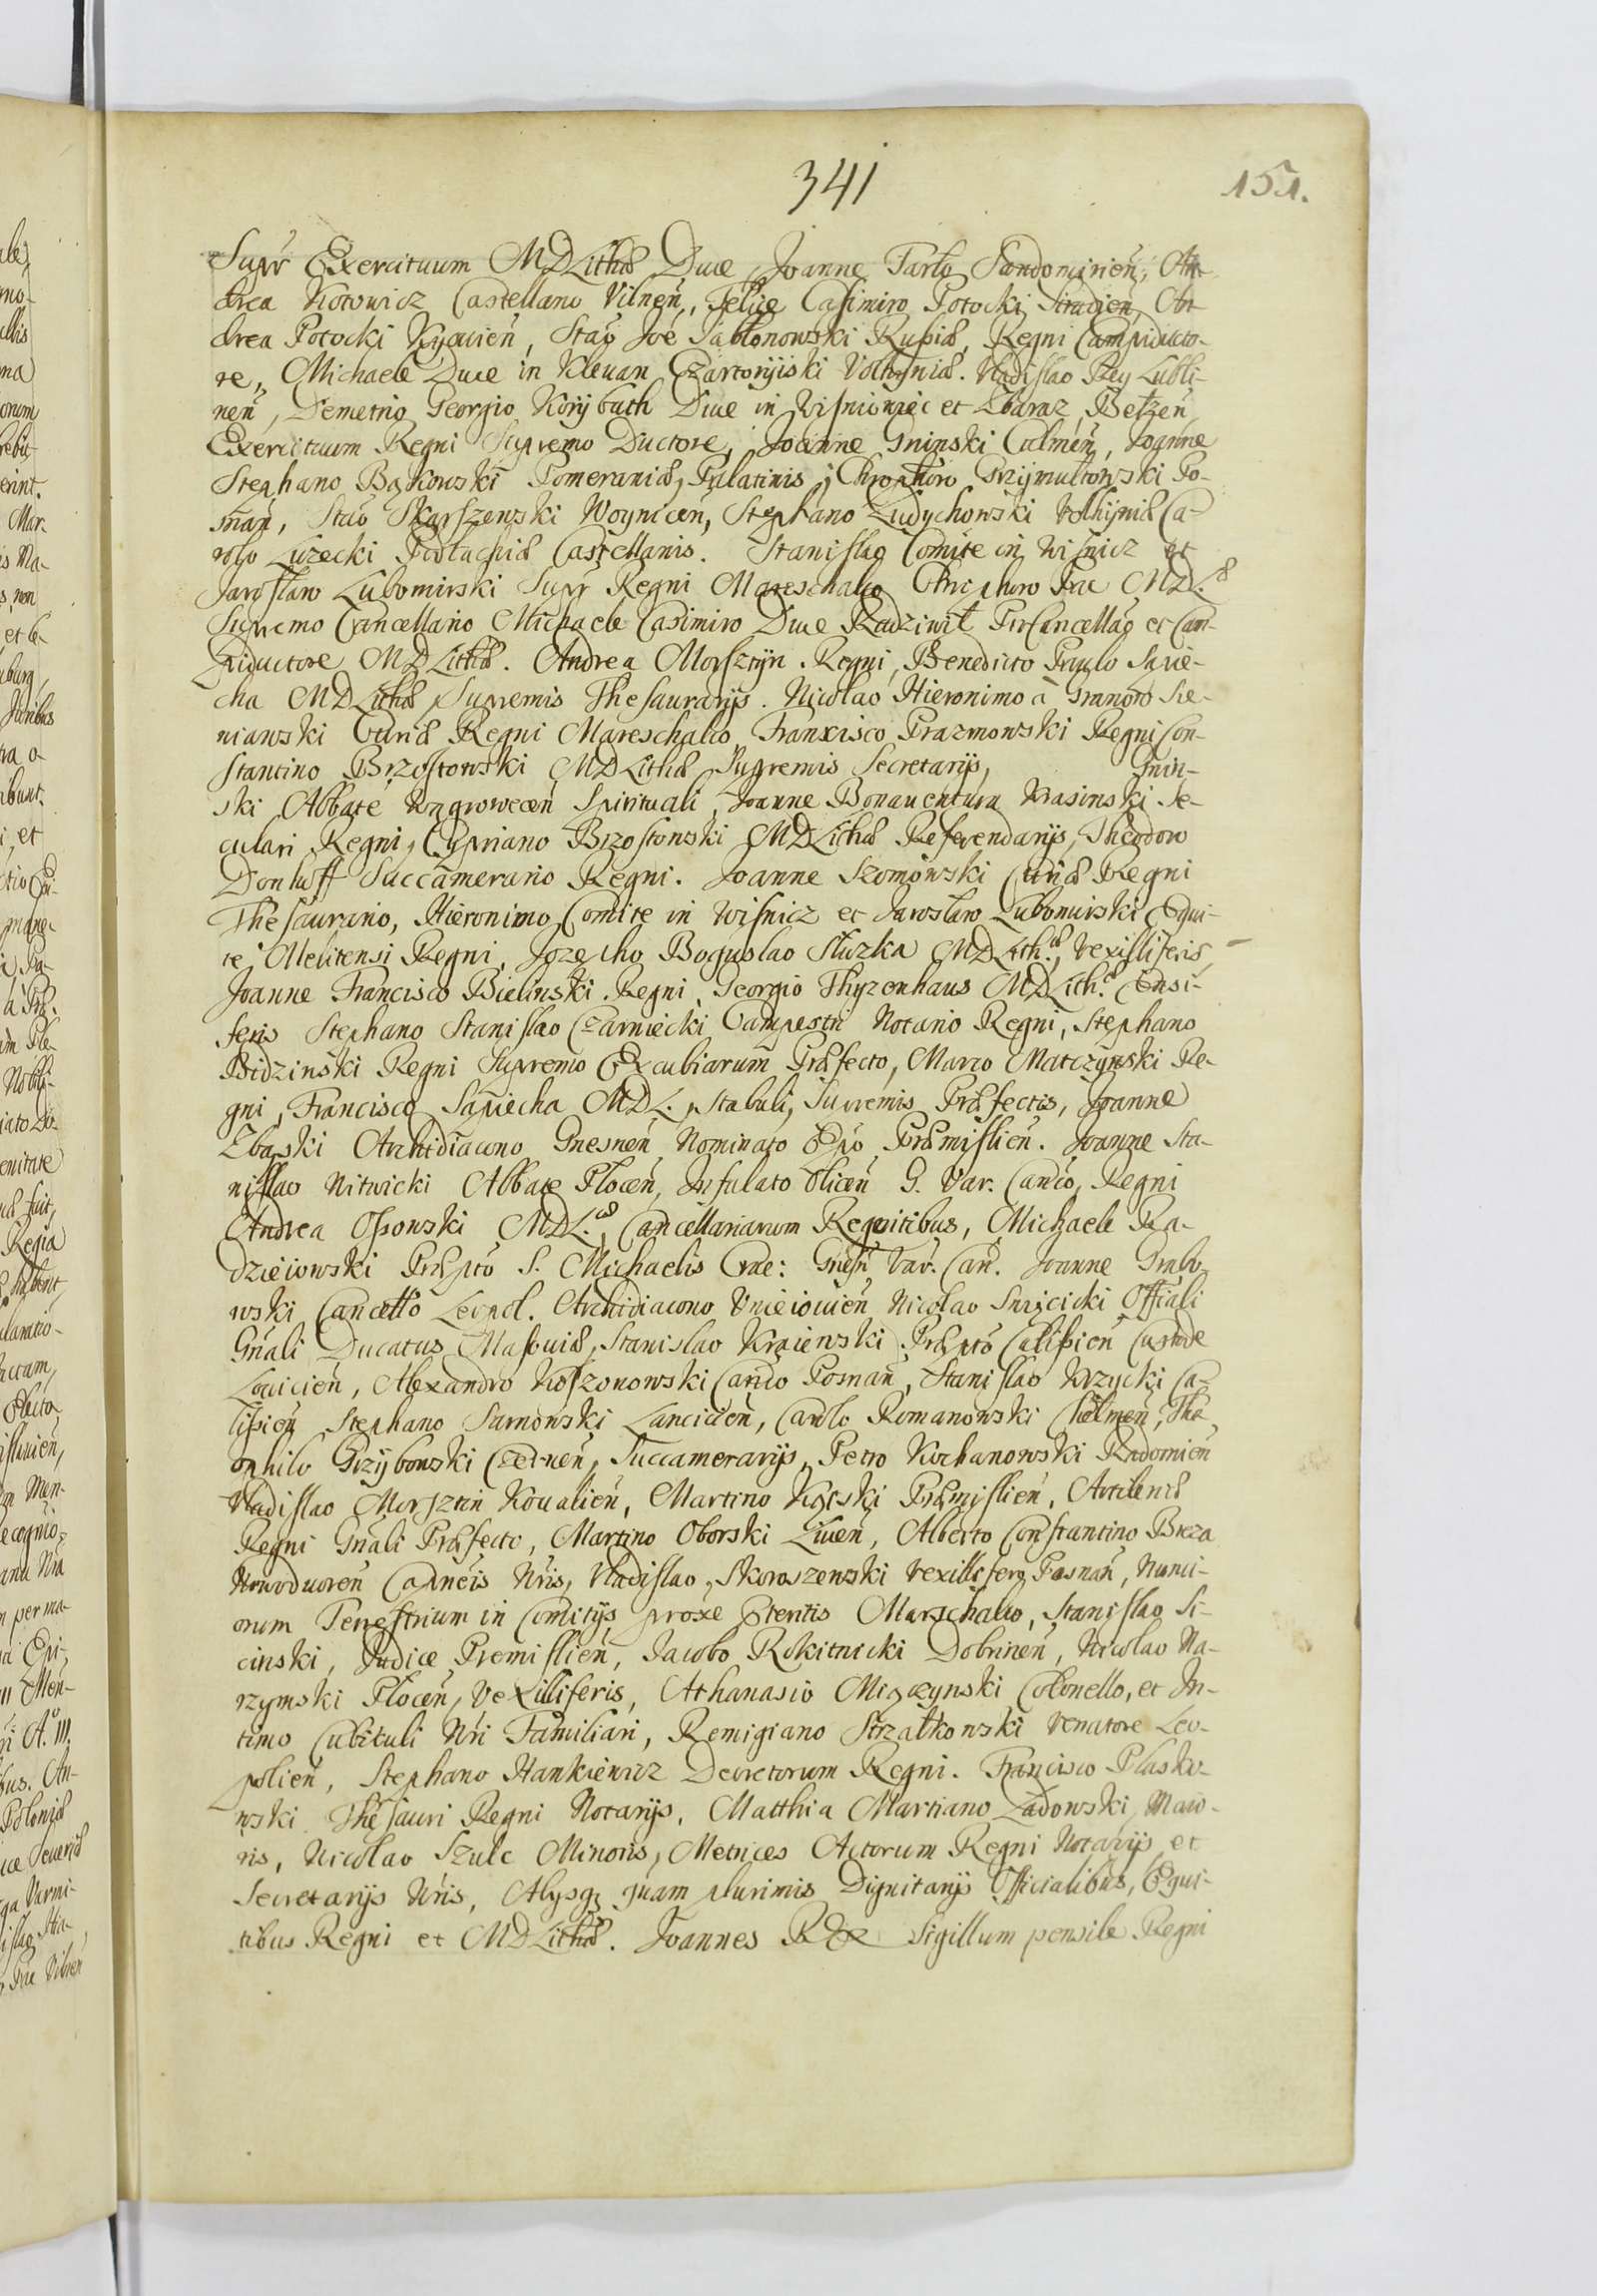 341
151.
Supr Exercituum MDLithæ Duce, Joanne Tarło Sandomirien̄, An-
drea Kotowicz Castellano Vilnen̄, Felice Casimiro Potocki Siradien̄, An-
drea Potocki Kijovien̄, Stāo Joē Jabłonowski Russiæ, Regni Campiducto-
re, Michaele Duce in Klevan Czartoryiski Volhyniæ. Vladislao Rey Lubli-
nen̄, Demetrio Georgio Korybuth Duce in Wisniowiec et Zbaraz, Bełzen̄
Exercituum Regni Supremo Ductore, Joanne Gninski Culmen̄, Joanne
Stephano Bąkowski Pomeraniæ, Palatinis; Chrophoro Grzymułtowski Po-
snan̄, Stāo Skarszewski Woynicen̄, Stephano Ludychowski Volhyniæ Ca-
rolo Luzecki Podlachiæ Castellanis. Stanislao Comite in Wisnicz et
Jaroslaw Lubomirski Supr Regni Mareschalco Chriphoro Pac MDL.æ
Supremo Cancellario Michaele Casimiro Duce Radziwił ProCancellāo et Cam-
piductore MDLithæ. Andrea Morsztyn Regni, Benedicto Paulo Sapie-
cha MDLithæ, Supremis Thesaurarijs. Nicolao Hieronimo a Granow Sie-
niawski Curiæ Regni Mareschalco, Francisco Prazmowski Regni Con-
stantino Brzostowski MDLithæ Supremis Secretarijs, Gnin-
ski Abbate Wągrowecen̄ Spirituali, Joanne Bonaventura Krasinski Se-
culari Regni, Cypriano Brzostowski MDLithæ Referendarijs, Theodoro
Donhoff Succamerario Regni. Joanne Szomowski Curiæ Regni
Thesaurario, Hieronimo Comite in Wisnicz et Jaroslaw Lubomirski Equi-
te Melitensi Regni, Jozepho Boguslao Słuzka MDLith.æ, Vexilliferis,
Joanne Francisco Bielinski Regni, Georgio Thyzenhaus MDLith.æ Ensi-
feris Stephano Stanislao Czarniecki Campestri Notario Regni, Stephano
Bidzinski Regni Supremo Excubiarum Præfecto, Marco Matczynski Re-
gni, Francisco Sapiecha MDL., Stabuli, Supremis Præfectis, Joanne
Zbąski Archidiacono Gnesnen̄ Nominato Ep̄o Præmislien̄. Joanne Sta-
nislao Witwicki Abbate Plocen̄, Infulato Olicen̄ G. Var. Can̄co, Regni
Andrea Ossowski MDL.æ, Cancellariarum Regentibus, Michaele Ra-
dzieiowski Præpto S. Michaelis Crac: Gnesn̄ Var. Can̄. Joanne Grabo-
wski Cancello Leopol. Archidiacono Unieiovien̄ Nicolao Swięcicki Offiali
Gn̄ali Ducatus Masoviæ, Stanislao Kraiewski Præpto Calissien̄ Custode
Lovicien̄, Alexandro Koszonowski Can̄co Posnan̄, Stanislao Krzycki Ca-
lissien̄ Stephano Sarnowski Lancicien̄, Carolo Romanowski Chełmen̄, The-
ophilo Grzybowski Czernen̄, Succamerarijs, Petro Kochanowski Radomien̄
Vladislao Morsztin Kovalien̄, Martino Kącski Præmislien̄, Artileriæ
Regni Gn̄ali Præfecto, Martino Oborski Liven̄, Alberto Constantino Breza
Nowodvoren̄ Capneis Nr̄is, Vladislao Skoroszewski Vexillifero Posnan̄, Nunci-
orum Terrestrium in Comitijs proxe Pteritis Marschalco, Stanislao Si-
cinski, Judice Premislien̄, Jacobo Rokitnicki Dobrinen̄, Nicolao Na-
rzymski Plocen̄, Vexilliferis, Athanasio Miączynski Colonello, et In-
timo Cubiculi Nr̄i Familiari, Remigiano Strzałkowski Venatore Leo-
polien̄, Stephano Hankiewicz Decretorum Regni. Francisco Plasko-
wski Thesauri Regni Notarijs, Matthia Martiano Ladowski, Maio-
ris, Nicolao Szulc Minoris, Metrices Actorum Regni Notarijs et
Secretarijs Nr̄is, Alysq; quam plurimis Dignitarijs Officialibus, Equi-
tibus Regni et MDLithæ. Joannes Rex Sigillum pensile Regni